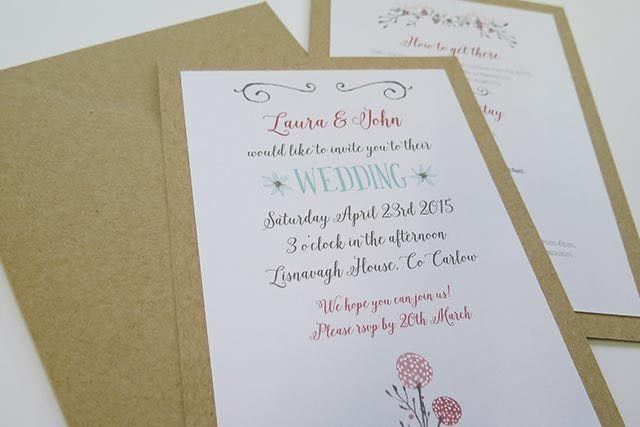 Laura & John
would like to invite you to their
WEDDING
Saturday April 23rd 2015
3 o'clock in the afternoon
Lisnavagh House, Co Carlow
We hope you can join us!
Please rsvp by 20th March
How to get there